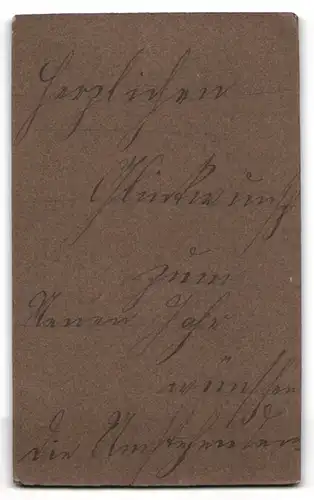 Herzlichen
Glückwunsch
zum
Neuen Jahr
wünschen
die Umstehenden